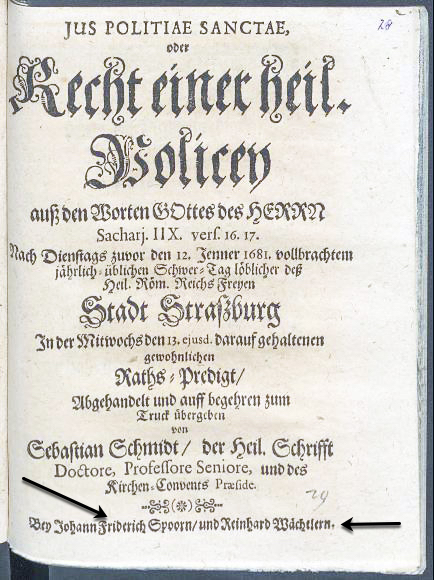 JUS POLITIAE SANCTAE,
28
oder
Recht einer heil.
Policey
auß den Worten GOttes des HERRN
Sacharj. IIX. vers. 16. 17.
Nach Dienstags zuvor den 12. Jenner 1681. vollbrachtem
jährlich-üblichen Schwer-Tag löblicher deß
Heil. Röm. Reichs Freyen
Stadt Straßburg
In der Mittwochs den 13. ejusd. darauf gehaltenen
gewohnlichen
Raths-Predigt/
Abgehandelt und auff begehren zum
Truck übergeben
von
Sebastian Schmidt/ der Heil. Schrifft
Doctore, Professore Seniore, und des
Kirchen-Convents Præside.
29
Bey Johann Friderich Spoorn/ und Reinhard Wächtlern.